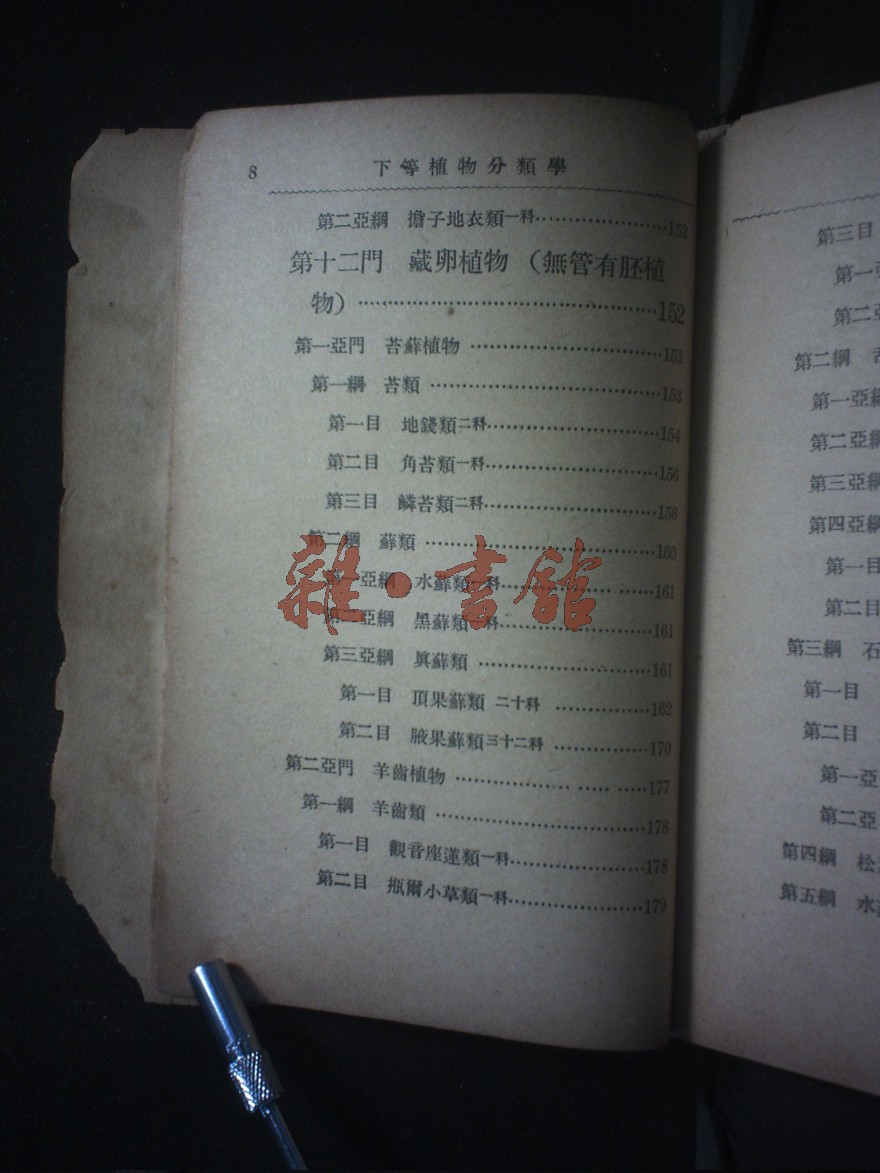 8
下等植物分類學
第二亞綱 擔子地衣類一科……………………152
第十二門 藏卵植物 (無管有胚植
物)……………………………………152
第一亞門 苔蘚植物……………………………153
第一綱 苔類……………………………………153
第一目 地錢類二科……………………………154
第二目 角苔類一科……………………………156
第三目 鱗苔類二科……………………………156
第二綱 蘚類……………………………………160
第一亞綱 水蘚類一科…………………………161
第二亞綱 黑蘚類一科…………………………161
第三亞綱 眞蘚類………………………………161
第一目 頂果蘚類 二十科 ……………………162
第二目 腋果蘚類三十二科 …………………170
第二亞門 羊齒植物……………………………177
第一綱 羊齒類…………………………………178
第一目 觀音座蓮類一科………………………178
第二目 瓶爾小草類一科………………………179
雜·書館
第三目
第一
第二亞
第二綱
第一亞綱
第二亞綱
第三亞綱
第四亞綱
第一目
第二目
第三綱 石
第一目
第二目
第一亞
第二亞
第四綱 松
第五綱 水